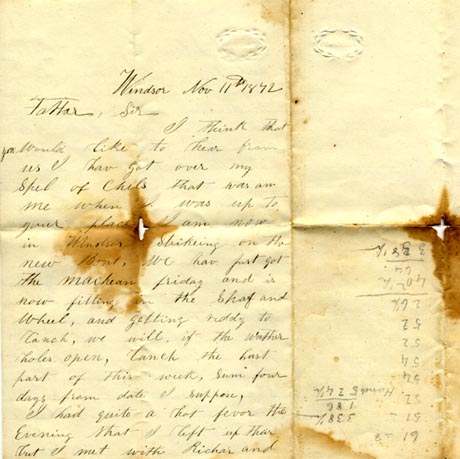 Windsor Nov 11th 1872
Fathar, Sir
I think that
you Would like to hear from
us I hav got over my
Spel of Chils that was on
me when I was up to
your place I am now
in Windsor Strikeing on the
new Boat, We hav just got
the Machean friday and is
now fitting in the Shaf and
Wheel, and getting reddy to
Lanch, we will, if the wather
holes open, Lanch the last
part of this week, Sum four
days from date I suppose,
I had quite a hot fevor the
Evening that I left up thar
but I met with Richar and
61
51
52
54
54
52
52